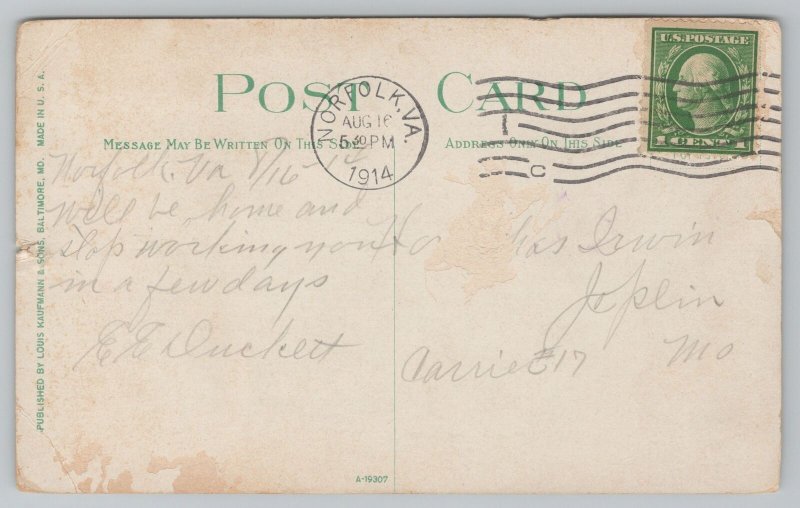 POST CARD
MESSAGE MAY BE WRITTEN ON THIS SIDE
ADDRESS ONLY ON THIS SIDE
PUBLISHED BY LOUIS KAUFMANN & SONS, BALTIMORE, MD. MADE IN U.S.A.
NORFOLK, VA.
AUG 16
5 30 PM
1914
C
U.S. POSTAGE
1 CENT 1
Norfolk Va 8/16 14
Will be home and
stop working you
in a few days
E E Duckett
Irwin
Joplin
Mo
Carrier 17
A-19307